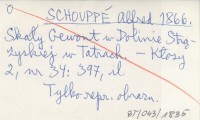 SCHOUPPÉ Alfred 1866.
Skały Gewont w Dolinie Strą-
żyskiej w Tatrach. - Kłosy
2, nr 34: 397, il
Tylko repr. obrazu.
BT/043/1835